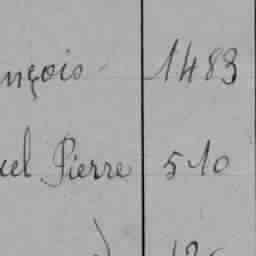 nçois 1483
uel Pierre 510